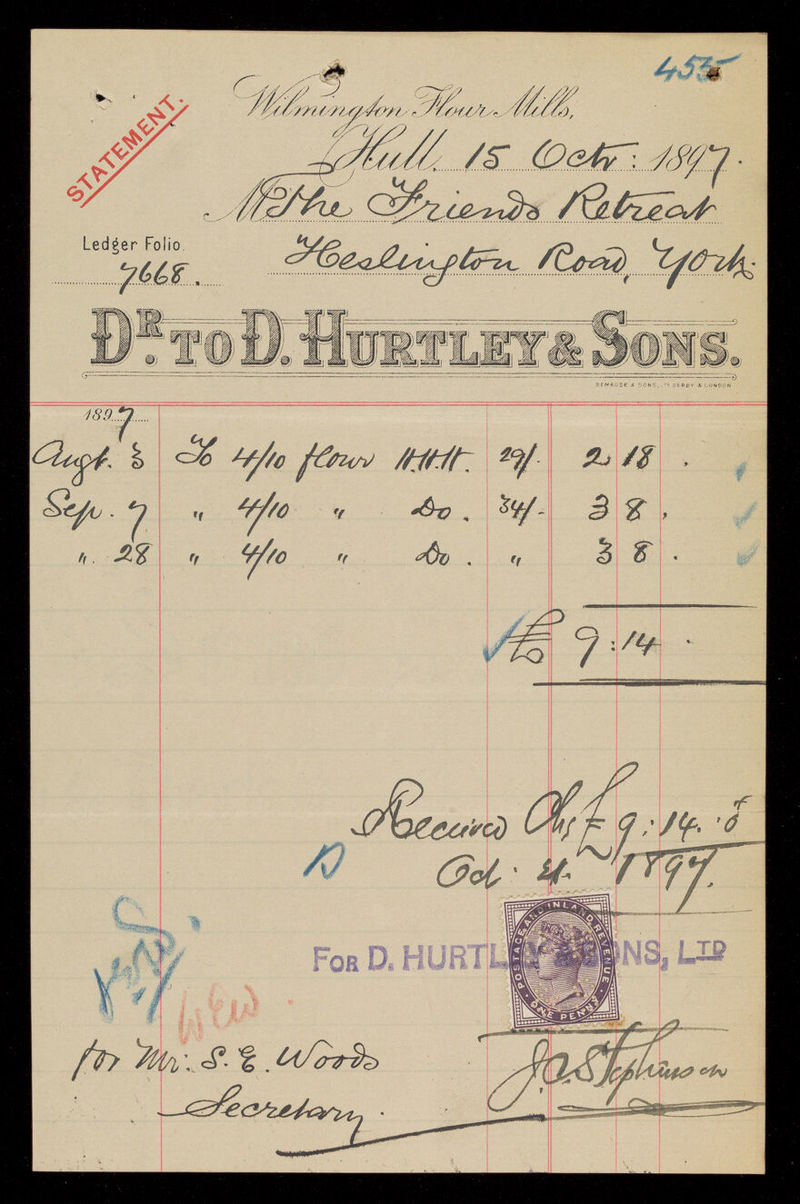 455
Wilmington Flour Mills,
STATEMENT.
Hull, 15 Octr: 1897.
M The Friends Retreat
Ledger Folio.
7668.
Heslington Road, York.
DR. TO D. HURTLEY & SONS.
BEMROSE & SONS, LD DERBY & LONDON
1897
Augt. 3 To 4/10 flour H.H.H. 29/- 2 18 .
Sep. 7 " 4/10 " Do. 34/- 3 8 .
". 28 " 4/10 " Do. " 3 8 .
£ 9:14 -
Received Chq £ 9:14.:0
Oct. 21. 1897.
POSTAGE AND INLAND REVENUE
ONE PENNY
FOR D. HURTLEY & SONS, LTD
WEW.
for Mr. S. E. Woods
J. Stephenson
Secretary.